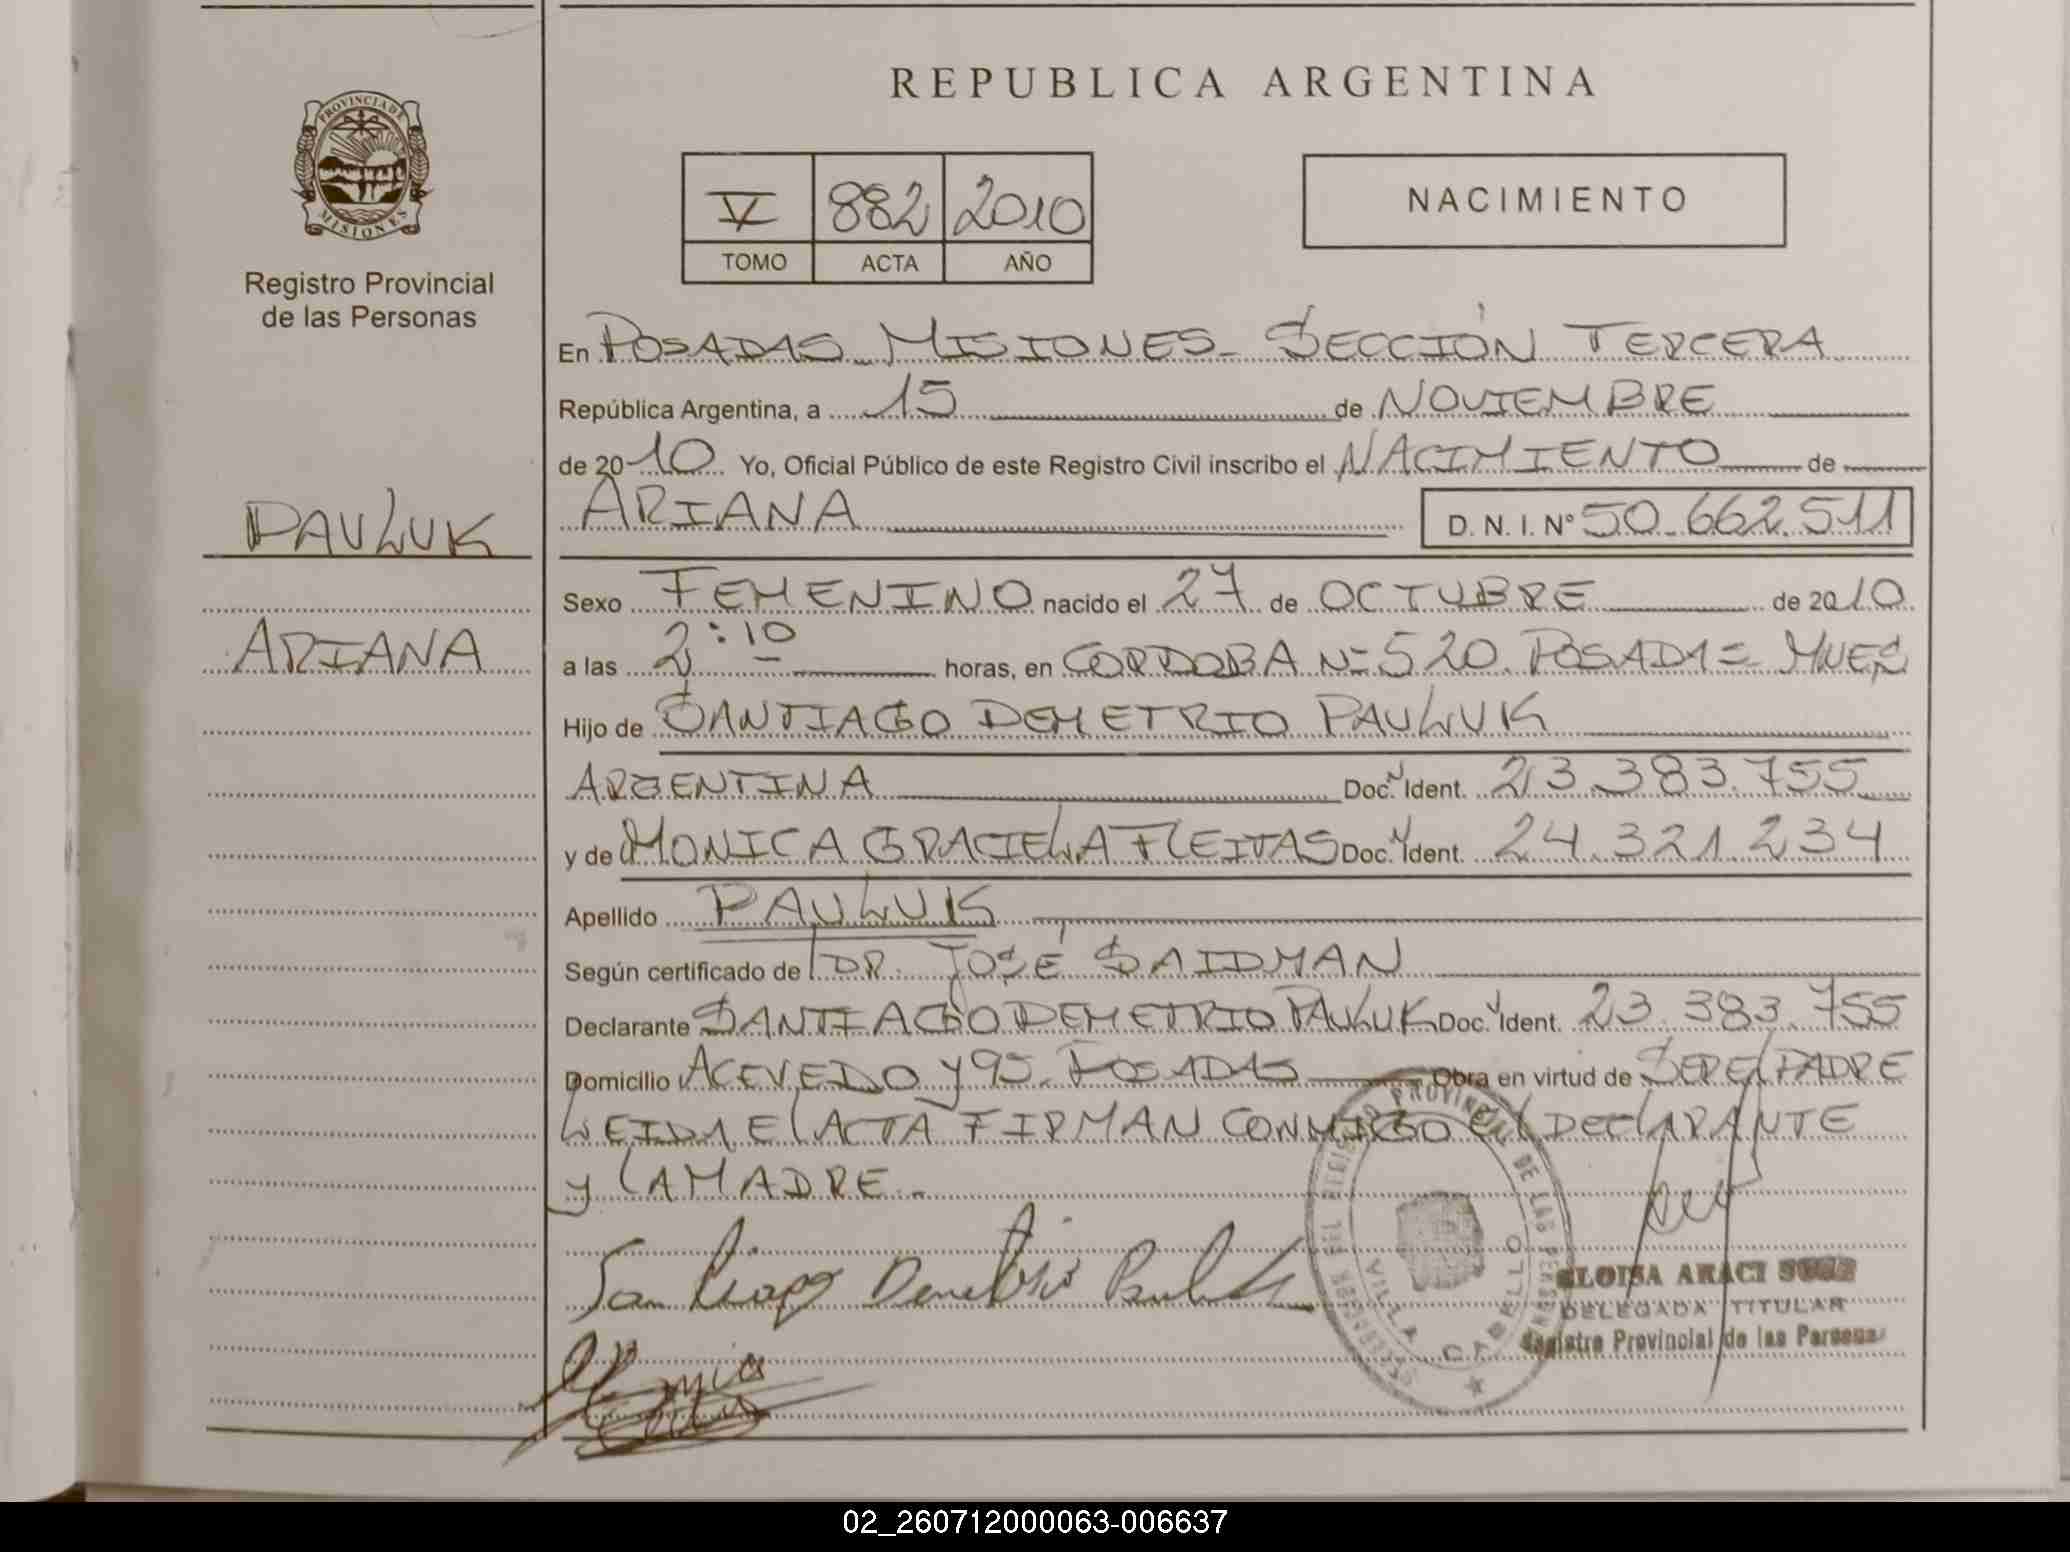 REPUBLICA ARGENTINA
PROVINCIA DE
MISIONES
Registro Provincial
de las Personas
V 882 2010
TOMO ACTA AÑO
NACIMIENTO
En POSADAS - MISIONES - SECCIÓN TERCERA
República Argentina, a 15 de NOVIEMBRE
de 2010 Yo, Oficial Público de este Registro Civil inscribo el NACIMIENTO de
PAULUK
ARIANA D. N. I. N° 50.662.511
Sexo FEMENINO nacido el 27 de OCTUBRE de 2010
ARIANA
a las 2:10 horas, en CORDOBA N= 520. POSADAS MNES
Hijo de SANTIAGO DEMETRIO PAULUK
ARGENTINA Doc. Ident. 23.383.755
y de MONICA GRACIELA FLEITAS Doc. Ident. 24.321.234
Apellido PAULUK
Según certificado de DR. JOSÉ SAIDMAN
Declarante SANTIAGO DEMETRIO PAULUK Doc. Ident. 23.383.755
Domicilio ACEVEDO y 95. POSADAS Obra en virtud de SER El PADRE
LEIDA El ACTA FIRMAN CONMIGO El DEClARANTE
y lA MADRE.-
Santiago Demetrio Pauluk
VILLA CABELLO
ELOISA ARACI
DELEGADA TITULAR
Registro Provincial de las Personas
02_260712000063-006637